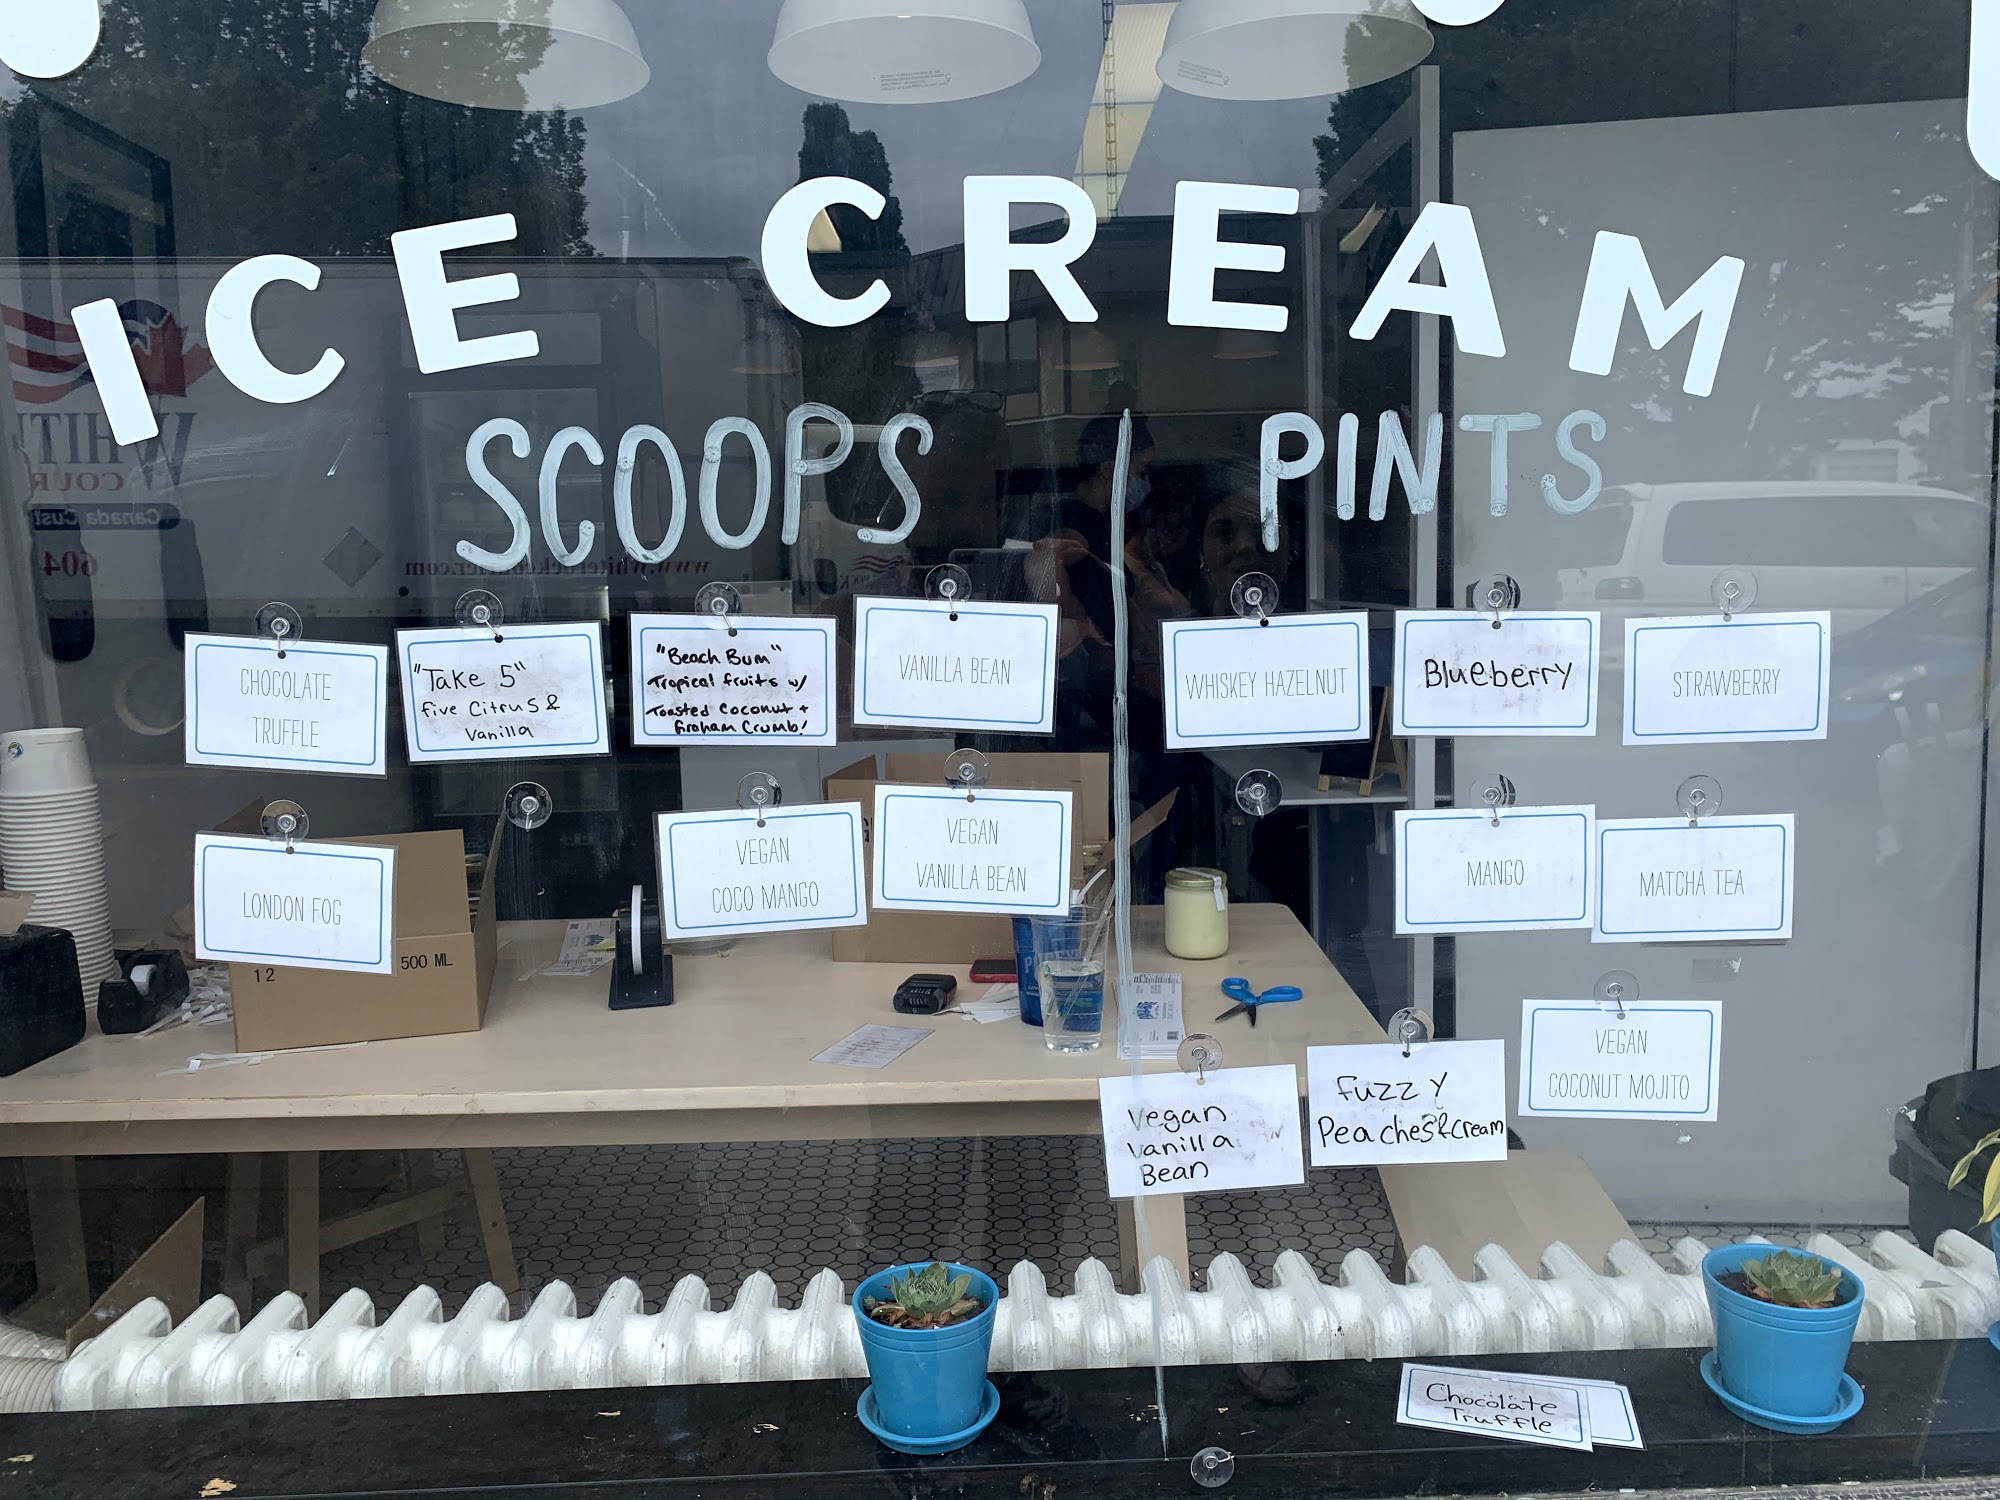 ICE CREAM
SCOOPS
PINTS
CHOCOLATE
TRUFFLE
"Take 5"
five Citrus &
Vanilla
"Beach Bum"
Tropical fruits w/
Toasted Coconut +
Graham Crumb!
VANILLA BEAN
WHISKEY HAZELNUT
Blueberry
STRAWBERRY
LONDON FOG
VEGAN
COCO MANGO
VEGAN
VANILLA BEAN
MANGO
MATCHA TEA
Vegan
Vanilla
Bean
Fuzzy
Peaches&cream
VEGAN
COCONUT MOJITO
12
500 ML
Chocolate
Truffle
604